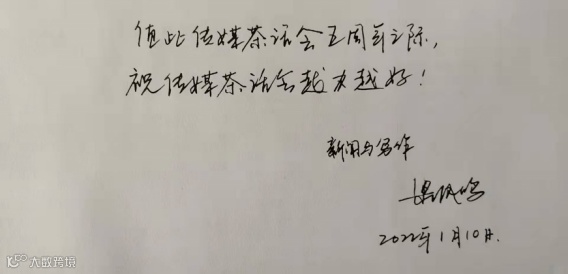 值此传媒茶话会五周年之际，
祝传媒茶话会越办越好！
新闻与写作
2022年1月10日.
大数跨境